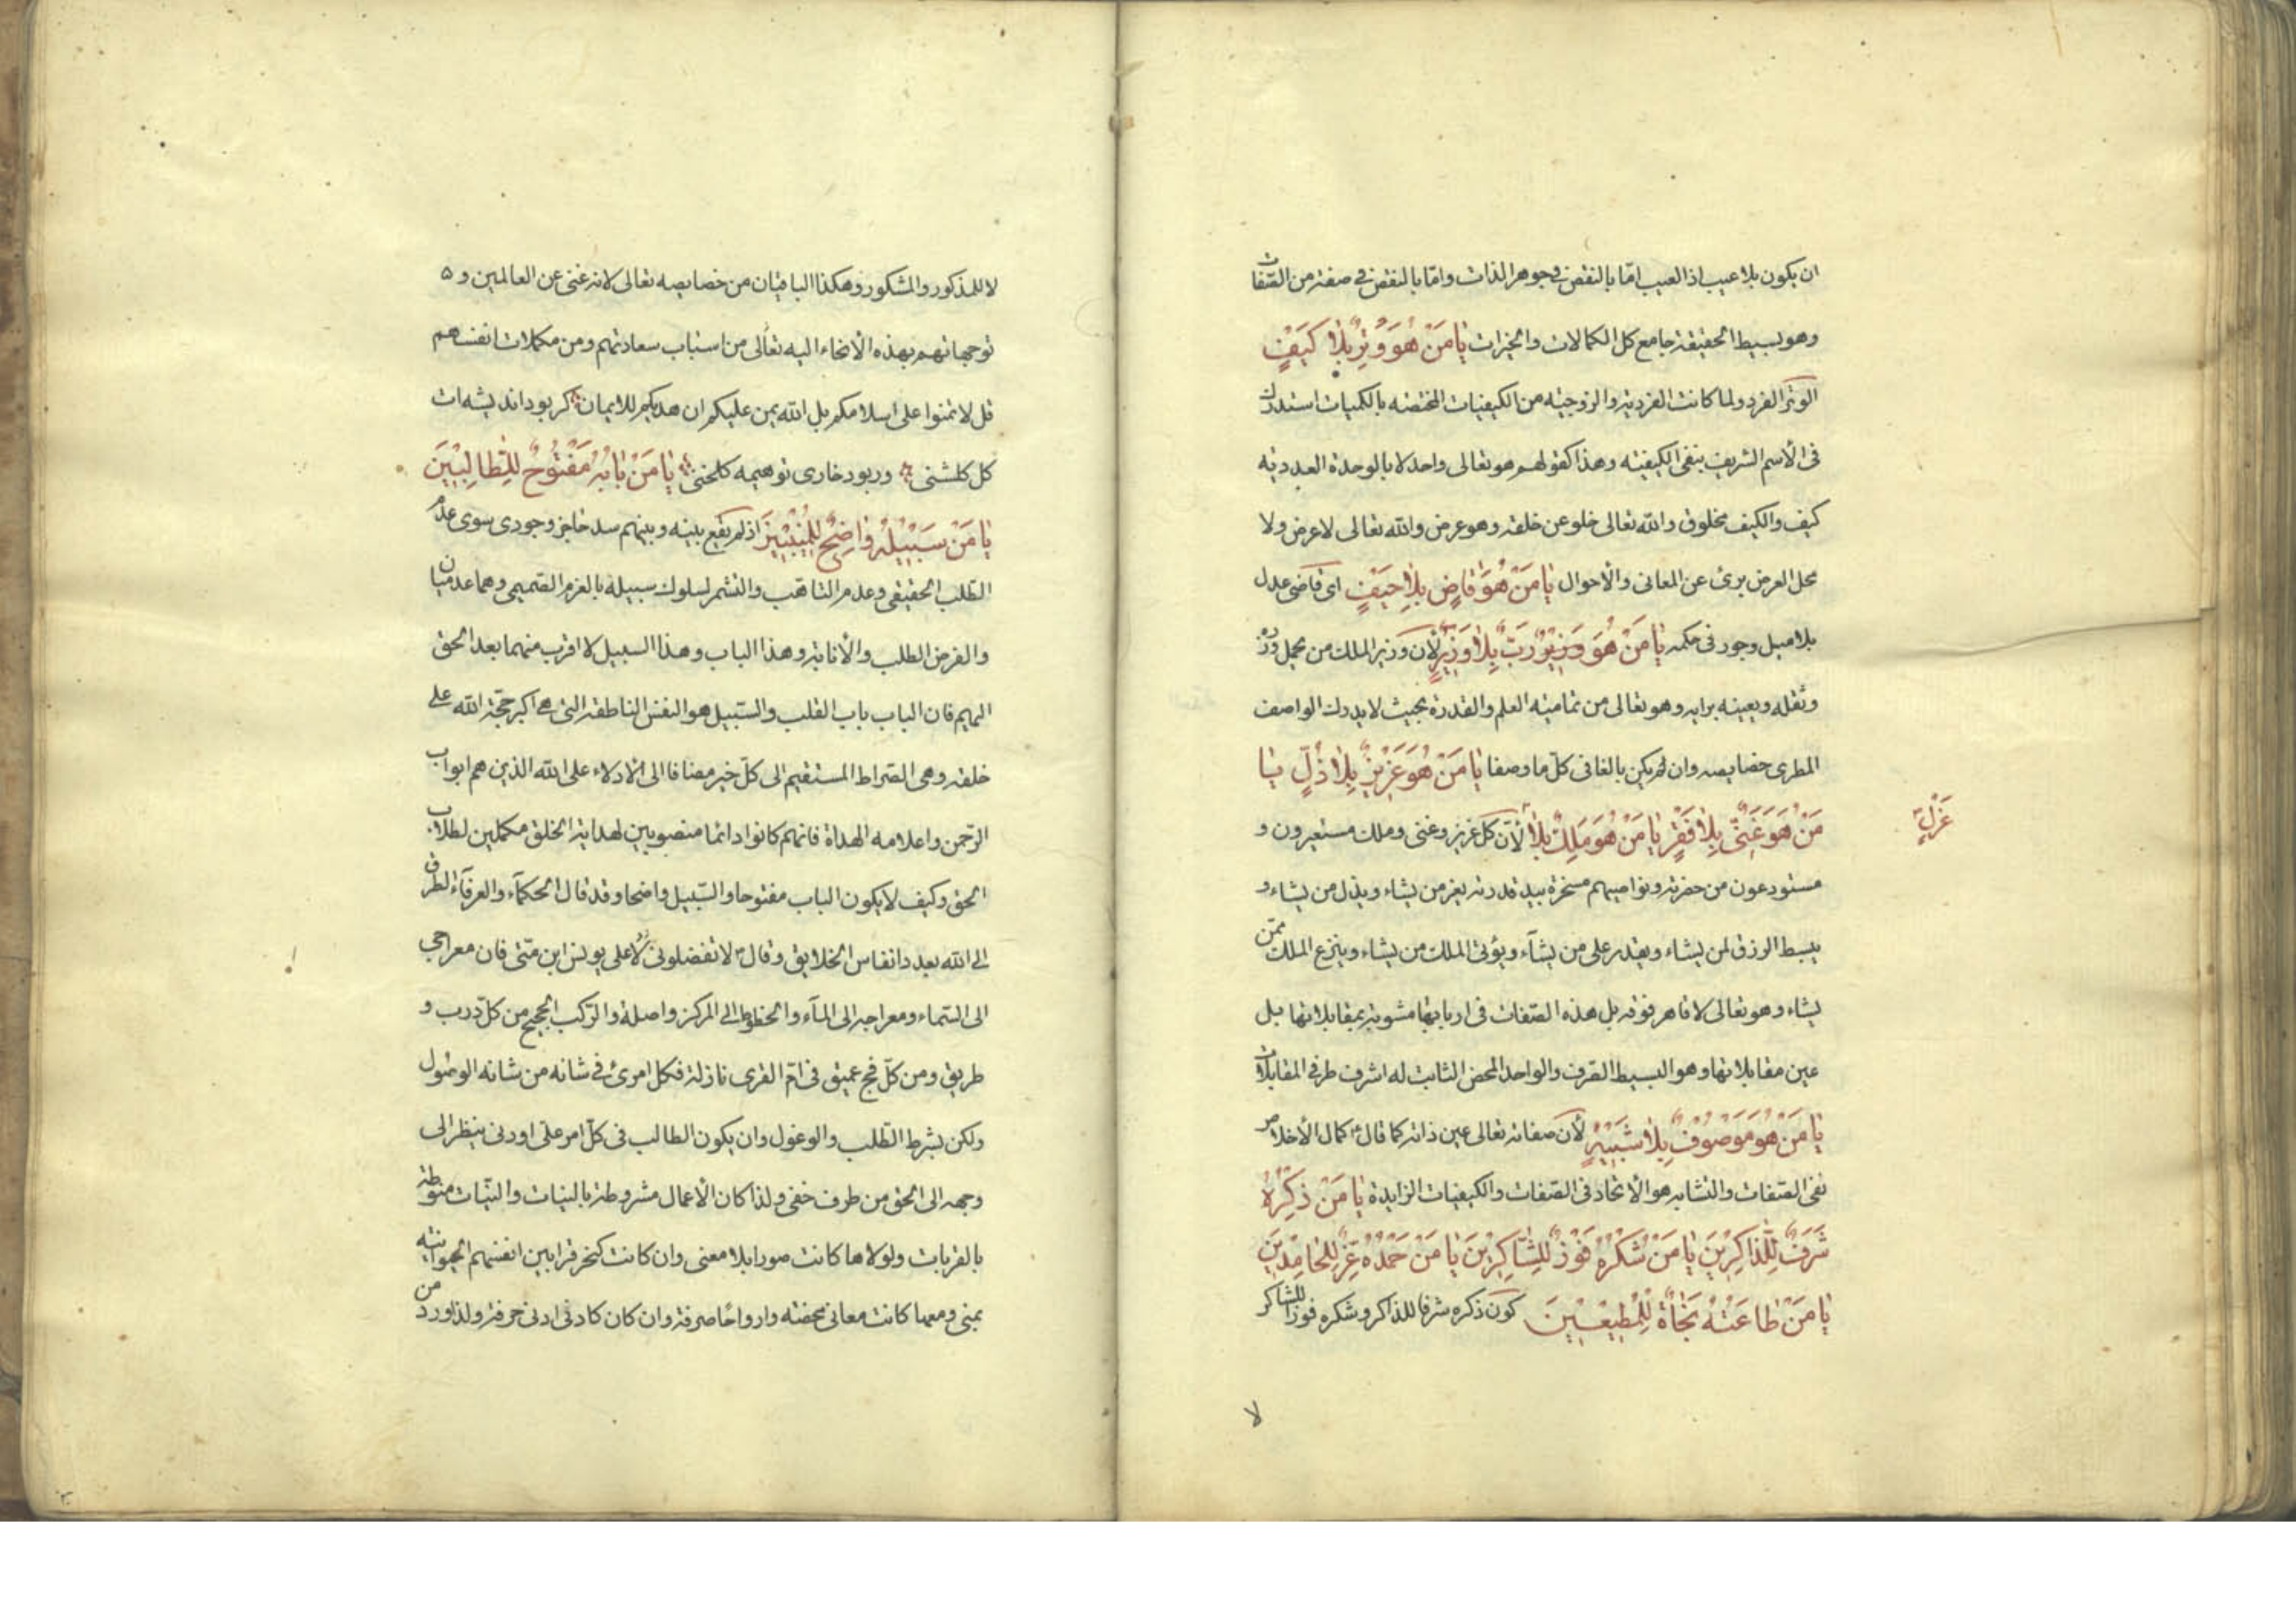 ان يكون بلا عيب اذ العيب امّا بالنقص فى جوهر الذات وامّا بالنقص فى صفة من الصّفات
وهو بسيط الحقيقة جامع كل الكمالات والخيرات يٰا مَنْ هُوَ وِتْرٌ بِلٰا كَيْفٍ
الوتر الفرد ولما كانت الفردية والزوجيّه من الكيفيات المختصه بالكميات استدرك
فى الأسم الشريف بنفى الكيفيته وهذا كقولهم هو تعالى واحد لا بالوحدة العدديّه
كيف والكيف مخلوق والله تعالى خلو عن خلقه وهو عرض والله تعالى لا عرض ولا
محل العرض برئ عن المعانى والأحوال يٰا مَنْ هُوَ قٰاضٍ بِلٰا حَيْفٍ اى قاضى عدل
بلا ميل وجور فى حكمه يٰا مَنْ هُوَ رَبٌّ بِلٰا وَزِيرٍ لأن وزير الملك من يحمل وزره
وثقله ويعينه برايه وهو تعالى من تماميّه العلم والقدرة بحيث لا يدرك الواصف
المطرى خصايصه وان لم يكن بالغا فى كلّ ما وصفا يٰا مَنْ هُوَ عَزِيزٌ بِلٰا ذُلٍّ يٰا
مَنْ هُوَ غَنِىٌّ بِلٰا فَقْرٍ يٰا مَنْ هُوَ مَلِكٌ بِلٰا لأنّ كل عزيز وغنى وملك مستعيرون و
عَزْلٍ
مستودعون من حضرته ونواصيهم مسخرة بيد قدرته يعز من يشاء ويذل من يشاء و
يبسط الرزق لمن يشاء ويقدر على من يشآء ويؤتى الملك من يشاء وينزع الملك ممّن
يشاء وهو تعالى لا قاهر فوقه بل هذه الصّفات فى اربابها مشوبة بمقابلاتها بل
عين مقابلاتها وهو البسيط الصّرف والواحد المحض الثابت له اشرف طرفى المقابلات
يٰا مَنْ هُوَ مَوْصُوفٌ بِلٰا شَبِيهٍ لأن صفاته تعالى عين ذاته كما قال ع كمال الأخلاص
نفى الصّفات والتشابه هو الأتحاد فى الصّفات والكيفيات الزايدة يٰا مَنْ ذِكْرُهُ
شَرَفٌ لِلذّٰاكِرِينَ يٰا مَنْ شُكْرُهُ فَوْزٌ لِلشّٰاكِرِينَ يٰا مَنْ حَمْدُهُ عِزٌّ لِلْحٰامِدِينَ
يٰا مَنْ طٰاعَتُهُ نَجٰاةٌ لِلْمُطِيعِينَ كون ذكره شرفا للذاكر وشكره فوزا للشاكر
لا
لا للمذكور والمشكور وهكذا الباقيان من خصايصه تعالى لانه غنى عن العالمين و
توجهاتهم بهذه الأنحاء اليه تعالى من اسباب سعادتهم ومن مكملات انفسهم
قل لا تمنوا على اسلامكم بل الله يمن عليكم ان هديكم للايمان كر بود انديشه ات
كل كلشنى ور بود خارى تو هيمه كلخنى يٰا مَنْ بٰابُهُ مَفْتُوحٌ لِلطّٰالِبِينَ
يٰا مَنْ سَبِيلُهُ وٰاضِحٌ لِلْمُنِيبِينَ اذ لم يقع بينه وبينهم سد حاجز وجودى سوى عدم
الطّلب الحقيقى وعدم التاهّب والتشمر لسلوك سبيله بالعزم الصّميمى وهما عدميان
والفرض الطلب والأنابة وهذا الباب وهذا السبيل لا اقرب منهما بعد الحق
اليهم فان الباب باب القلب والسّبيل هو النفس الناطقه التى هى اكبر حجّة الله على
خلقه وهى الصّراط المستقيم الى كلّ خير مضافا الى الأدلاء على الله الذين هم ابواب
الرّحمن واعلامه الهداة فانهم كانوا دائما منصوبين لهداية الخلق مكملين لطلاب
الحق وكيف لا يكون الباب مفتوحا والسّبيل واضحا وقد قال الحكمآء والعرفآء الطرق
الى الله بعدد انفاس الخلايق وقال ص لا تفضلونى على يونس ابن متّى فان معراجى
الى السّماء ومعراجه الى المآء والخطوط الى المركز واصلة والرّكب الحجيج من كلّ درب و
طريق ومن كلّ فج عميق فى امّ القرى نازلة فكل امرئ فى شانه من شانه الوصول
ولكن بشرط الطّلب والوغول وان يكون الطالب فى كلّ امر على او دنى ينظر الى
وجهه الى الحق من طرف خفى ولذا كان الأعمال مشروطة بالنيات والنّيات منوطة
بالقربات ولولاها كانت صورا بلا معنى وان كانت كنحر قرابين انفسهم الحيوانيّه
بمنى ومعها كانت معانى محضته وارواحًا صرفة وان كان كادنى ادنى حرفة ولذا ورد من